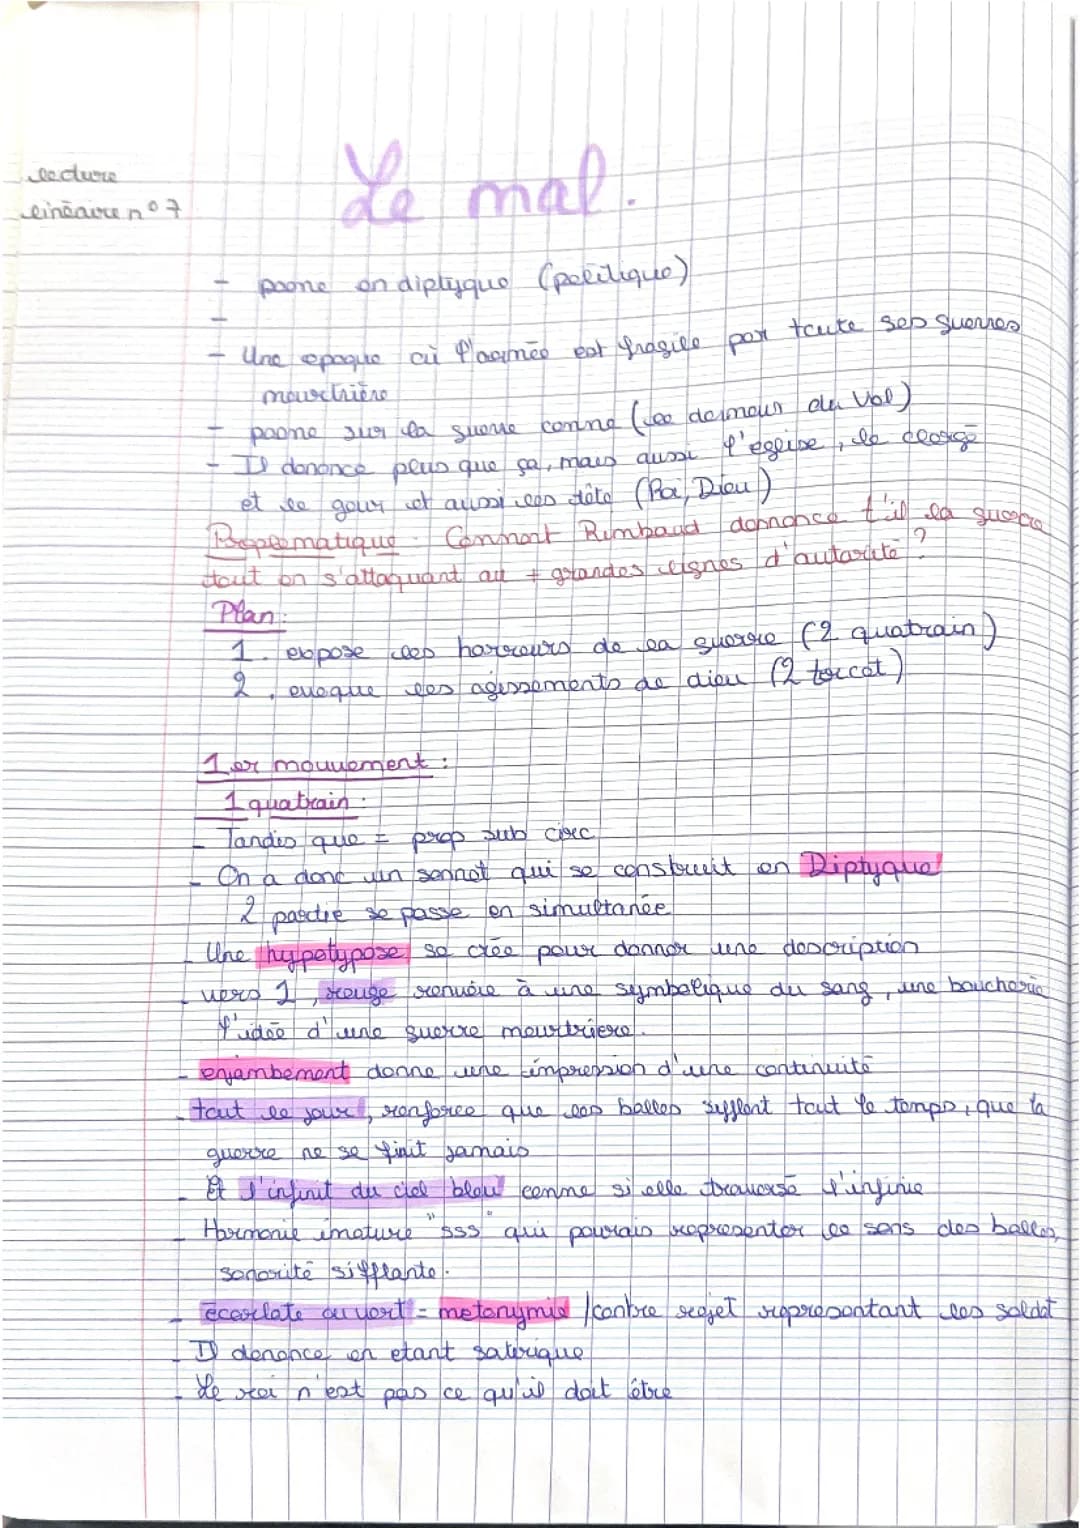 lecture
linéaire n°7
Le mal.
- poème en diptyque (politique)
-
- Une epoque où l'armée est fragile par toute ses guerres
meurtrière
- poème sur la guerre comme (le dormeur du Val)
- Il dénonce plus que ça, mais aussi l'eglise, le clergé
et le gouv et aussi les tête (Roi, Dieu)
Problématique. Comment Rimbaud dénnonce t'il la guerre
tout en s'attaquant au + grandes lignes d'autorité ?
Plan:
1. expose les horreurs de la guerre (2 quatrain)
2. evoque les agissements de dieu (2 tercet)
1er mouvement :
1 quatrain :
- Tandis que = prop sub circ
- On a donc un sonnet qui se construit en Diptyque
2 partie se passe en simultanée
- Une hypotypose se crée pour donner une description
- vers 1, rouge renvoie à une symbolique du sang, une boucherie
l'idée d'une guerre meurtriere.
- enjambement donne une impression d'une continuité
- tout le jour, renforce que les balles sifflent tout le temps, que la
guerre ne se finit jamais
- Et l'infinit du ciel bleu comme si elle traverse l'infinie
- Harmonie imature "sss" qui pourais representer le sons des balles,
sonorité sifflante.
- écarlate ou vert = metonymie /contre rejet représentant les soldat
- Il dénonce en etant satirique
- Le roi n'est pas ce qu'il doit être